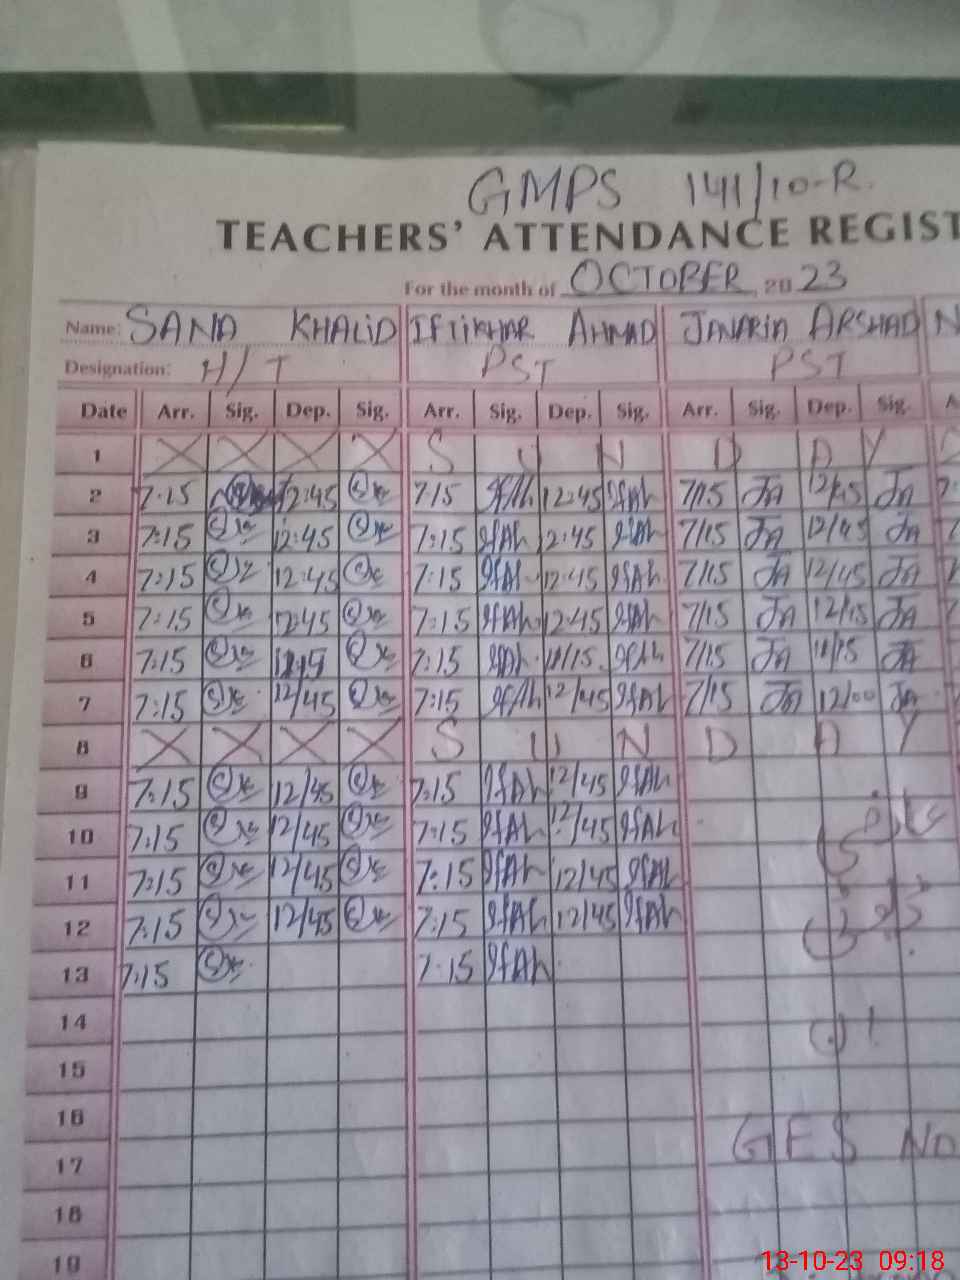 GMPS 141/10-R.
TEACHERS' ATTENDANCE REGIST
For the month of OCTOBER, 2023
Name: SANA KHALID IFTIKHAR AHMAD JAVARIA ARSHAD N
Designation: H/T PST PST
Date Arr. Sig. Dep. Sig. Arr. Sig. Dep. Sig. Arr. Sig. Dep. Sig. A
1 X X X X S U N D A Y S
2 7:15 12:45 7:15 IfAh 12:45 IfAh 7/15 JA 12/45 JA 7:
3 7:15 12:45 7:15 IfAh 12:45 IfAh 7/15 JA 12/45 JA
4 7:15 12:45 7:15 IfAh 12:45 IfAh 7/15 JA 12/45 JA
5 7:15 12:45 7:15 IfAh 12:45 IfAh 7/15 JA 12/45 JA
6 7:15 7:15 IfAh 11/15 IfAh 7/15 JA 11/15 JA
7 7:15 12/45 7:15 IfAh 12/45 IfAh 7/15 JA 12/00 JA
8 X X X X S U N D A Y
9 7:15 12/45 7:15 IfAh 12/45 IfAh
10 7:15 12/45 7:15 IfAh 12/45 IfAh
11 7:15 12/45 7:15 IfAh 12/45 IfAh
12 7:15 12/45 7:15 IfAh 12/45 IfAh
13 7:15 7:15 IfAh
14
15
16
17 GES No
18
19
13-10-23 09:18